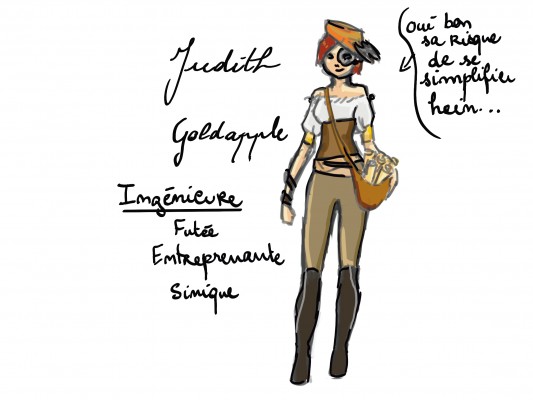 Judith
Goldapple
Ingénieure
Futée
Entreprenante
Sinique
oui bon
sa risque
de se
simplifier
hein...